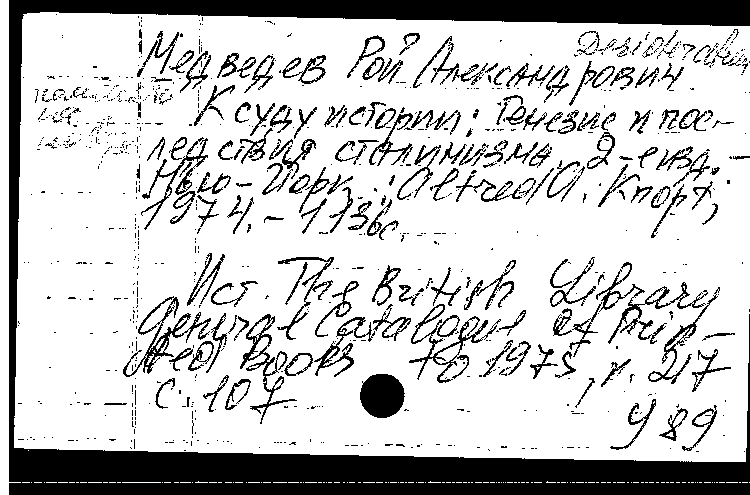 Desiderata
Медведев Рой Александрович
К суду истории: Генезис и пос-
ледствия сталинизма. 2-е изд. -
Нью-Йорк.: Alfred A. Кнорт;
1974. - 1136с.
Ист. The British Library
General Catalogue of Prin-
ted Books to 1975, v. 217
с. 107
У 89